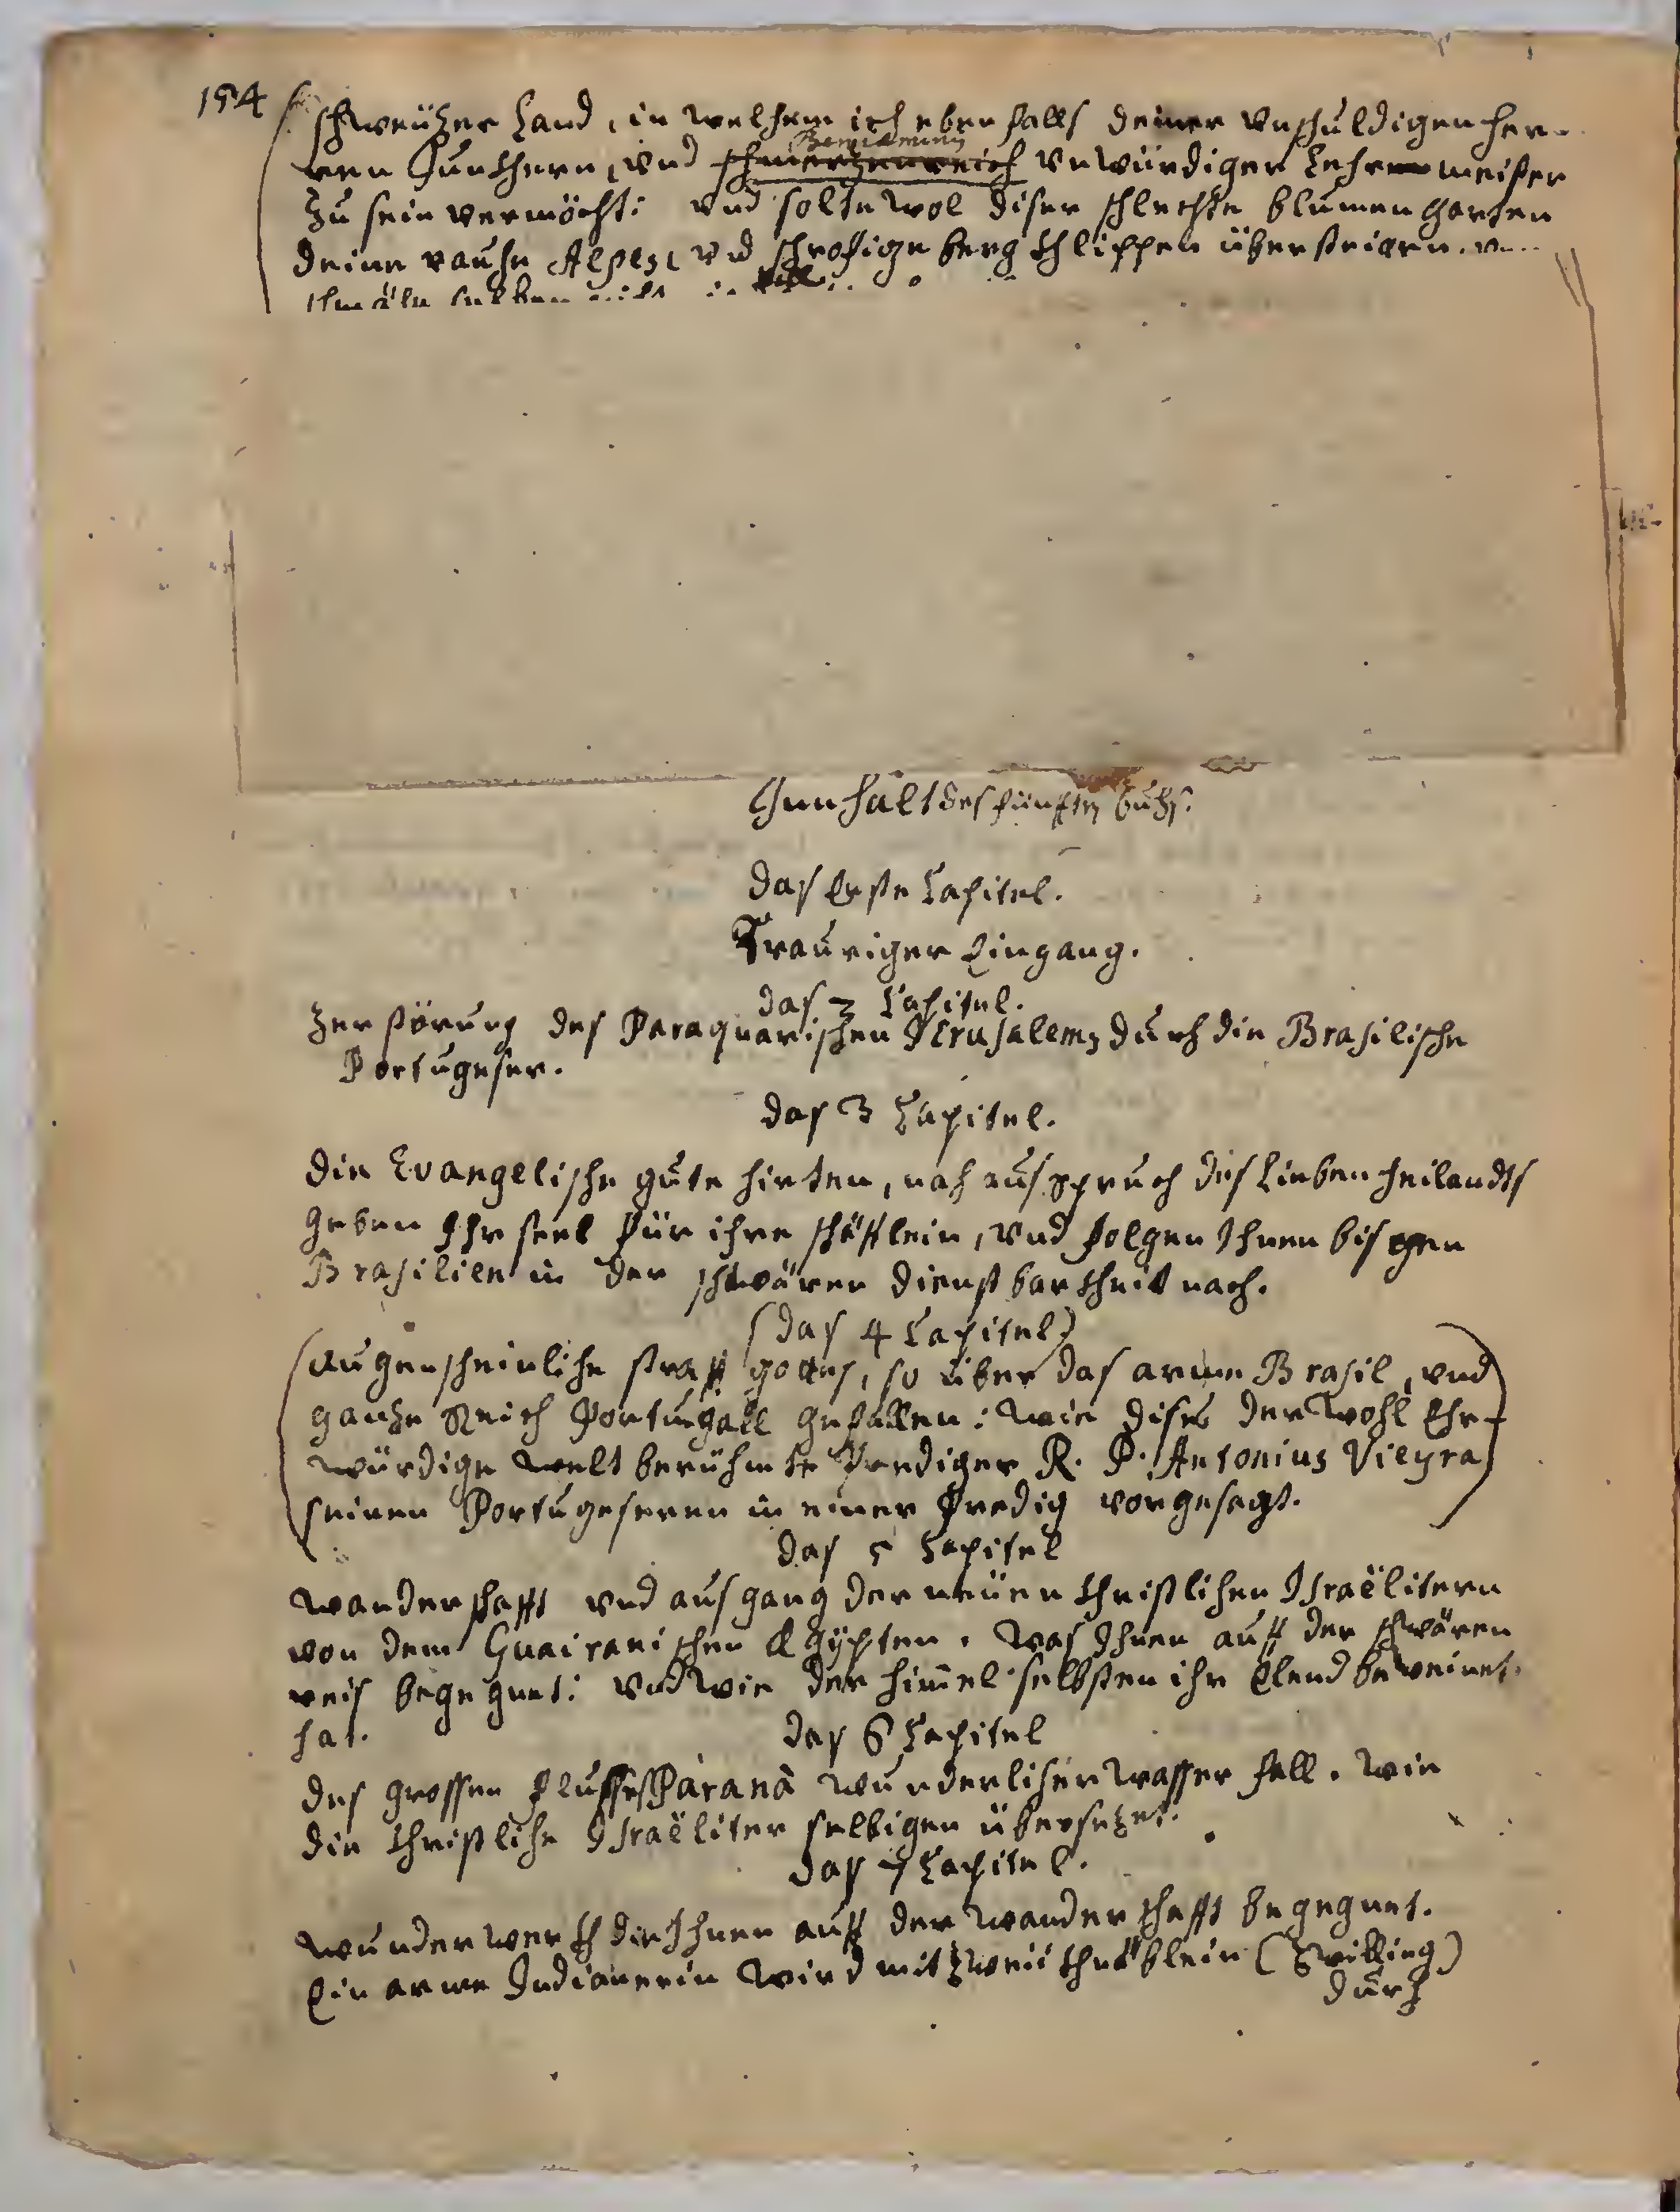 194
schweützer Land, in welchem ich ebenfalls deiner Vnschuldigen her-
ren Junkhern, vnd Vnwürdiger Lehr meister
zu sein vermöcht: vnd solte wol diser schlechte blumen garten
deine rauhe Alpes, vnd schrofige berg khlippen übersteigen.
Innhalt des fünfften buchs.
Das Erste Capitel.
Trauriger Eingang.
Das 2 Capitel.
Zerstörung des Paraquarischen Jerusalems durch die Brasilische
Portugeser.
Das 3 Capitel.
Die Evangelische gute hirten, nach ausspruch des Lieben heilandts
geben Ihr seel für ihre schäfflein, vnd folgen Ihnen bis gen
Brasilien in der schwären dienstbarkheit nach.
(Das 4 Capitel)
(augenscheinliche straff gottes, so über das arme Brasil, vnd
gantze Reich Portugall gefallen: wie dises der Wohl Ehr-
würdige welt berühmte Prediger R. P. Antonius Vieyra
seinen Portugeseren in einer Predig vorgesagt.)
Das 5 Capitel
wanderschafft vnd ausgang der neüen Christlichen Israëlitern
von dem Guairanischen Ægypten. was Ihnen auff der schwären
reis begegnet: vnd wie der himel selbsten ihr Elend beweinet
hat.
Das 6 Capitel
des grossen flusses Paranà wunderlicher wasser fall. wie
die Christliche Israëliter selbigen übersetzet.
Das 7 Capitel.
wunderwerkh die Ihnen auff der wanderschafft begegnet.
Ein arme Indianerin wird mit zweü khnäblein (Zwilling)
durch